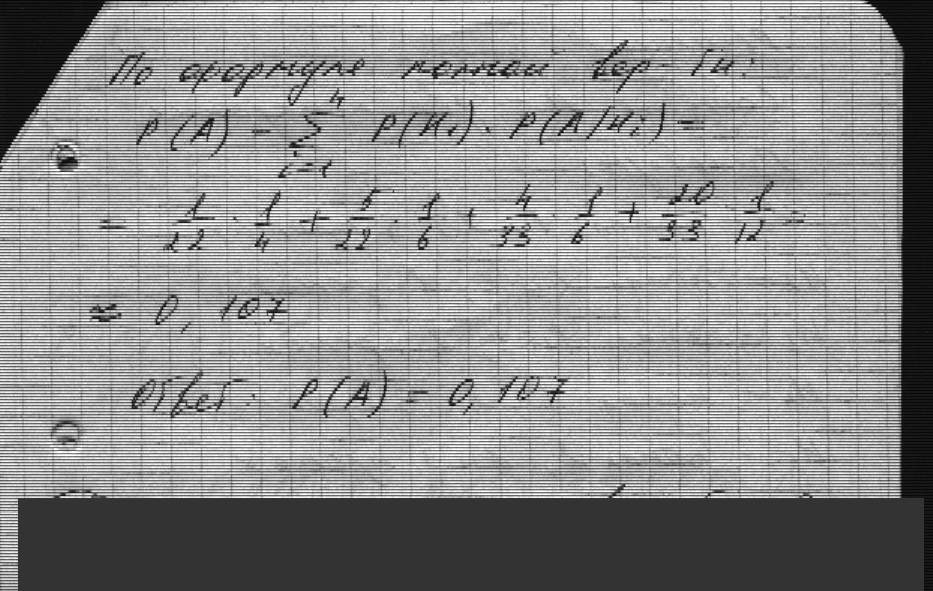 По формуле полной вер-ти:
P(A) = \sum_{i=1}^{4} P(H_i) · P(A/H_i) =
= \frac{1}{22} · \frac{1}{4} + \frac{5}{22} · \frac{1}{6} + \frac{4}{33} · \frac{1}{6} + \frac{20}{33} · \frac{1}{12} =
≈ 0,107
Ответ: P(A) = 0,107